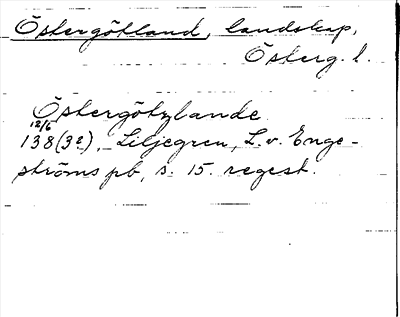 Östergötland, landskap,
Österg. l.
Östergötzlande
12/6
138(32), Liljegren, L. v. Enge-
ströms pb, s. 15. regest.